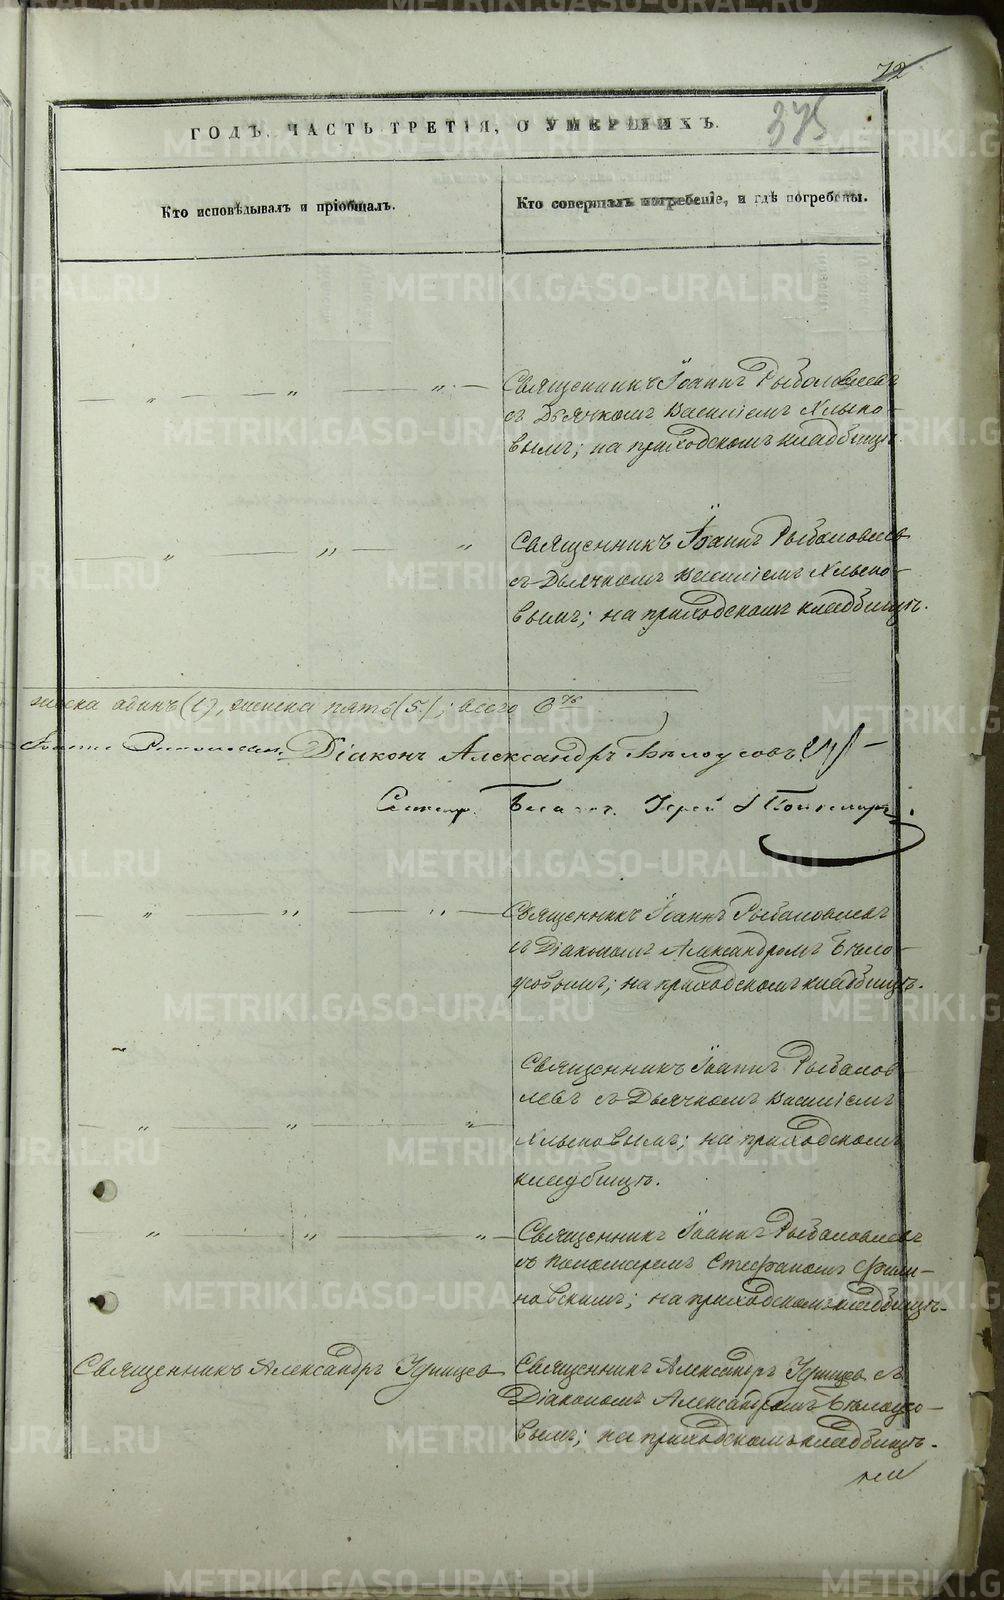 72
375
ГОДЪ. ЧАСТЬ ТРЕТІЯ, О УМЕРШИХЪ.
Кто исповѣдывалъ и пріобщалъ.
Кто совершалъ погребеніе, и гдѣ погребены.
Священникъ Іоаннъ Рыболовлевъ
съ Дьячкомъ Василіемъ Хлыно-
вымъ; на приходскомъ кладбищѣ.
Священникъ Іоаннъ Рыболовлевъ
съ Дьячкомъ Василіемъ Хлыно-
вымъ; на приходскомъ кладбищѣ.
одинъ (1), женска пять (5); всего 6
Діаконъ Александръ Бѣлоусовъ
Іерей
Священникъ Іоаннъ Рыболовлевъ
съ Діакономъ Александромъ Бѣло-
усовымъ; на приходскомъ кладбищѣ.
Священникъ Іоаннъ Рыболов-
левъ съ Дьячкомъ Василіемъ
Хлыновымъ; на приходскомъ
кладбищѣ.
Священникъ Іоаннъ Рыболовлевъ
съ Пономаремъ Стефаномъ Фили-
новскимъ; на приходскомъ кладбищѣ.
Священникъ Александръ
Священникъ Александръ съ
Діакономъ Александромъ Бѣлоусо-
вымъ; на приходскомъ кладбищѣ.
METRIKI.GASO-URAL.RU